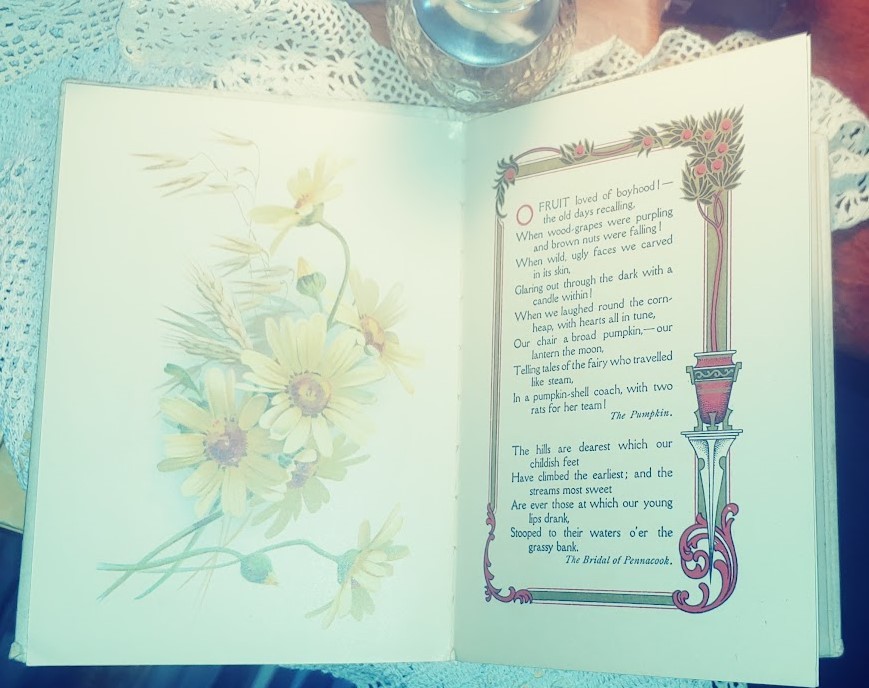 O FRUIT loved of boyhood!—
the old days recalling,
When wood-grapes were purpling
and brown nuts were falling!
When wild, ugly faces we carved
in its skin,
Glaring out through the dark with a
candle within!
When we laughed round the corn-
heap, with hearts all in tune,
Our chair a broad pumpkin,—our
lantern the moon,
Telling tales of the fairy who travelled
like steam,
In a pumpkin-shell coach, with two
rats for her team!
The Pumpkin.
The hills are dearest which our
childish feet
Have climbed the earliest; and the
streams most sweet
Are ever those at which our young
lips drank,
Stooped to their waters o'er the
grassy bank.
The Bridal of Pennacook.